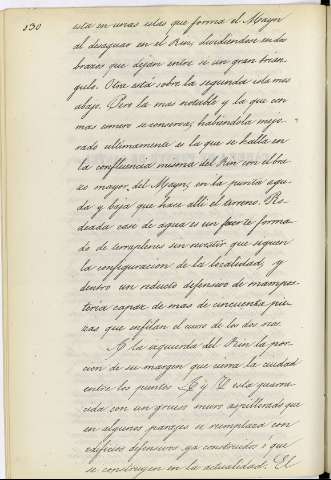 130
esta en unas islas que forma el Mayn
al desaguar en el Rin, dividiendose en dos
brazos que dejan entre si un gran trian-
gulo. Otra está sobre la segunda isla mas
abajo. Pero la mas notable y la que con
mas esmero se conserva; habiendola mejo-
rado ultimamente es la que se halla en
la confluencia misma del Rin con el bra-
zo mayor del Mayn; en la punta agu-
da y baja que hace alli el terreno. Ro-
deada casi de agua es un fuerte forma-
do de terraplenes sin revestir que siguen
la configuracion de la localidad, y
dentro un reducto defensivo de mampos-
teria capaz de mas de cincuenta pie-
zas que enfilan el curso de los dos rios.
A la izquierda del Rin la por-
cion de su margen que cierra la ciudad
entre los puntos A y T esta guarne-
cida con un grueso muro aspillerado que
en algunos parajes se remplaza con
edificios defensivos ya construidos ó que
se construyen en la actualidad. El